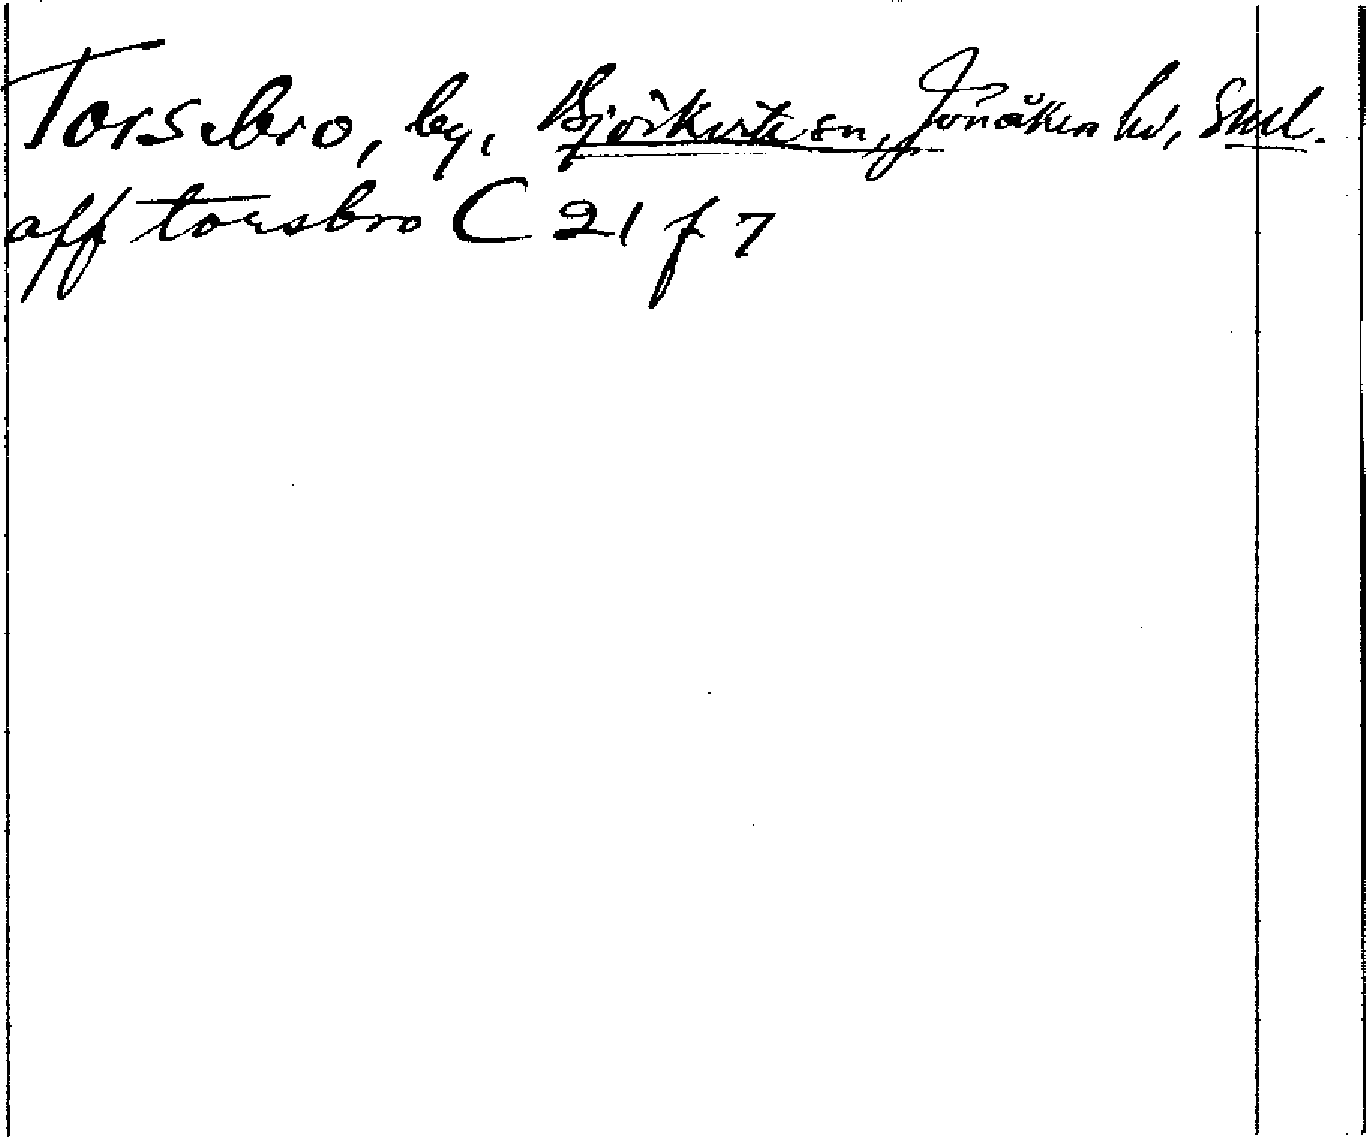 Torsebro, by, Björkvik sn, Jönåker hd, Sml.
aff torsbro C 21 f 7